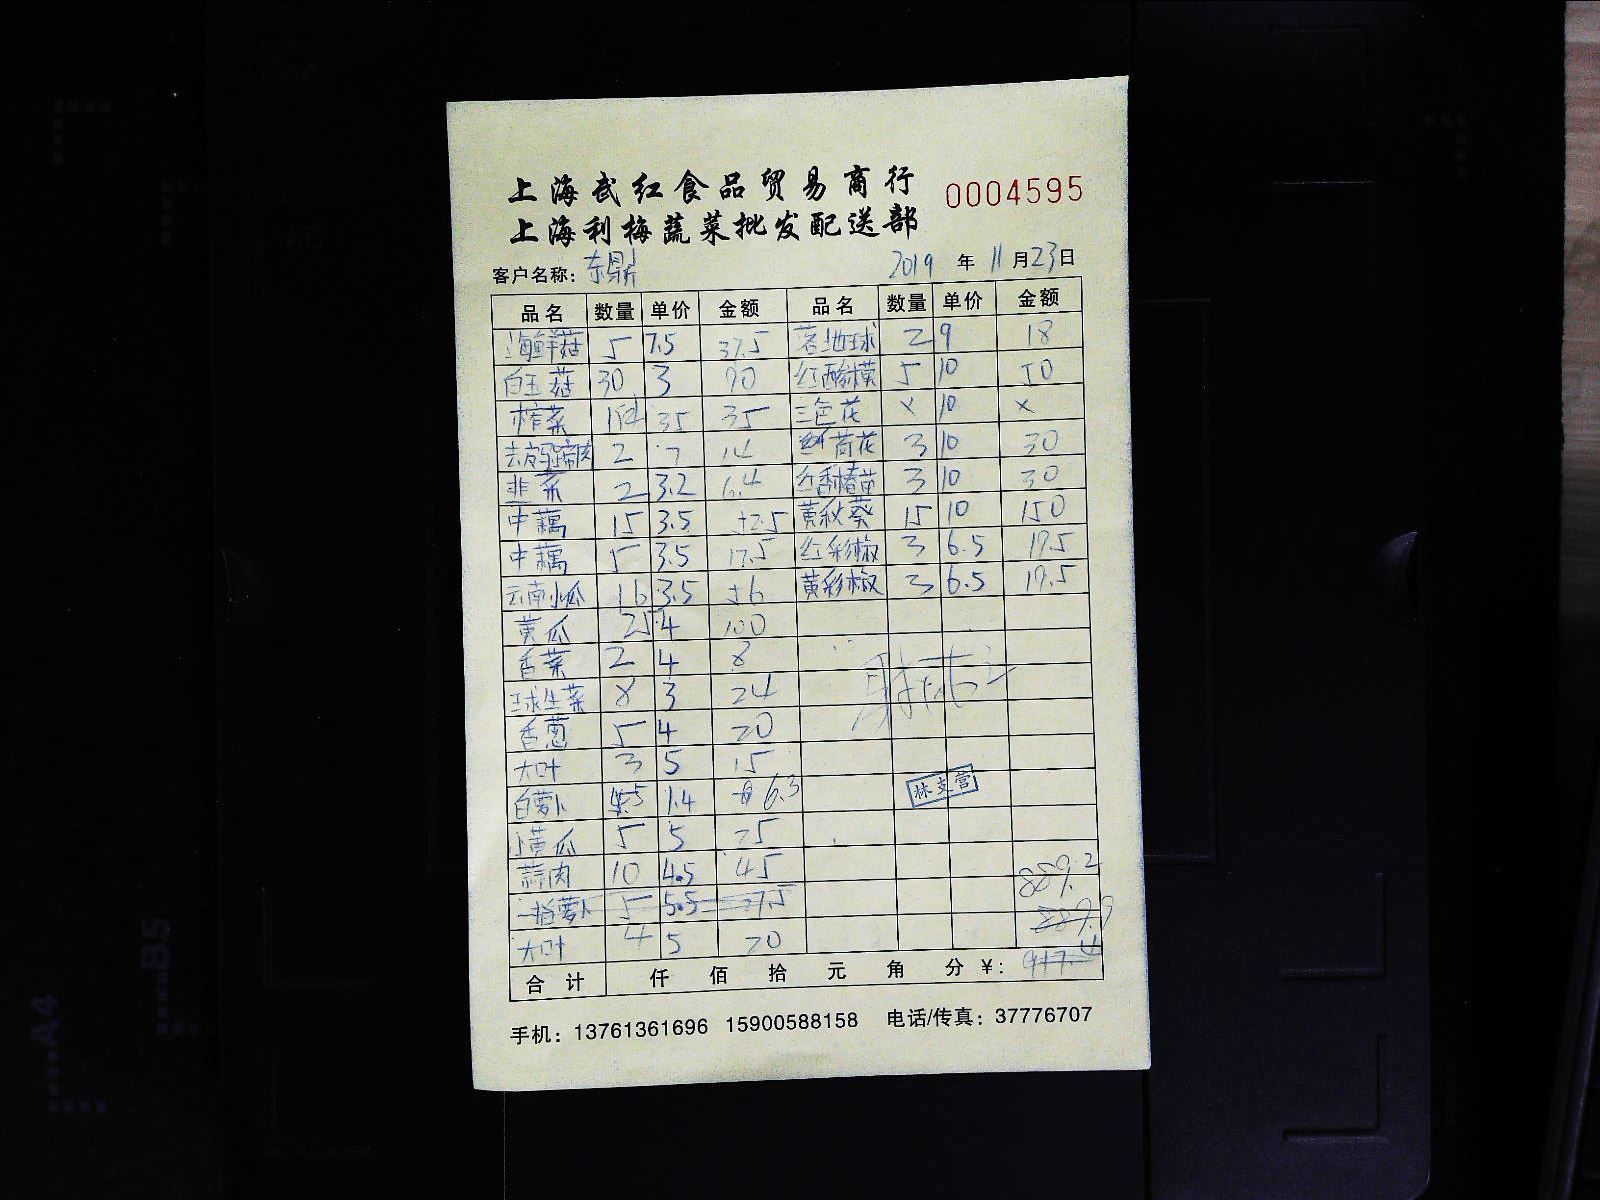 上海武红食品贸易商行
0004595
上海利梅蔬菜批发配送部
客户名称：东鼎 2019年11月23日
品名 数量 单价 金额 品名 数量 单价 金额
海鲜菇 5 7.5 37.5 落地球 2 9 18
白玉菇 30 3 90 红酸模 5 10 50
榨菜 35 35 三色花 × 10 ×
去皮马蹄肉 2 7 14 荷花 3 10 30
韭菜 2 3.2 6.4 红香椿苗 3 10 30
中藕 15 3.5 52.5 黄秋葵 15 10 150
中藕 5 3.5 17.5 红彩椒 3 6.5 19.5
云南小瓜 16 3.5 56 黄彩椒 3 6.5 19.5
黄瓜 25 4 100
香菜 2 4 8
球生菜 8 3 24
香葱 5 4 20
大叶 3 5 15
白萝卜 4.5 1.4 6.3
小黄瓜 5 5 25
蒜肉 10 4.5 45
萝卜 5 5.5 27.5
大叶 4 5 20
林支营
889.2
889.9
合计 仟 佰 拾 元 角 分 ¥: 917.4
手机：13761361696 15900588158 电话/传真：37776707